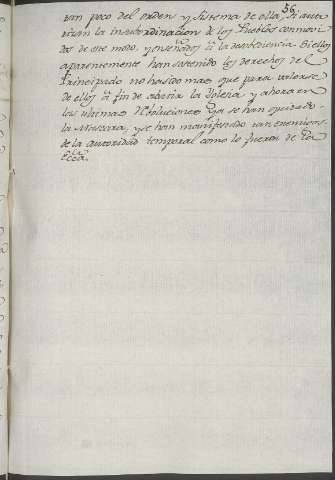 56.
tan poco del orden y sistema de ella, si auto
rizan la insubordinacion de los Pueblos conmovi
dos de ese modo, y enseñados á la desobediencia. Si ellos
aparentemente han sostenido los derechos de el
Principado no ha sido mas que para valerse
de ellos á fin de abatir la Iglesia, y ahora en
las ultimas Reboluciones ya se han quitado
la Mascara, y se han manifestado tan enemigos
de la autoridad temporal como lo fueron de la
Ecca.